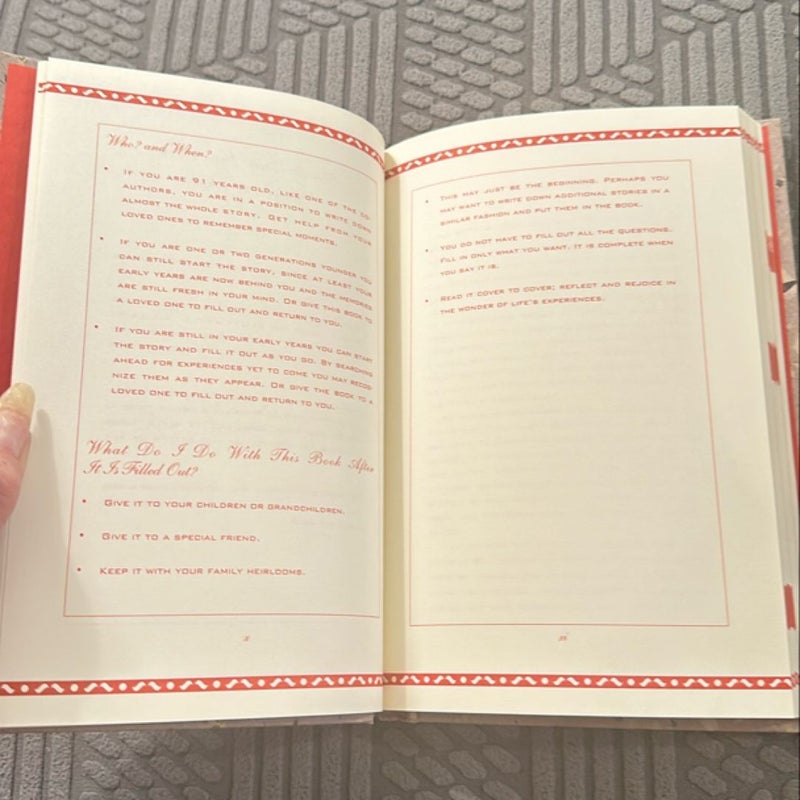 Who? and When?
• IF YOU ARE 91 YEARS OLD, LIKE ONE OF THE CO-
AUTHORS, YOU ARE IN A POSITION TO WRITE DOWN
ALMOST THE WHOLE STORY. GET HELP FROM YOUR
LOVED ONES TO REMEMBER SPECIAL MOMENTS.
• IF YOU ARE ONE OR TWO GENERATIONS YOUNGER YOU
CAN STILL START THE STORY, SINCE AT LEAST YOUR
EARLY YEARS ARE NOW BEHIND YOU AND THE MEMORIES
ARE STILL FRESH IN YOUR MIND. OR GIVE THIS BOOK TO
A LOVED ONE TO FILL OUT AND RETURN TO YOU.
• IF YOU ARE STILL IN YOUR EARLY YEARS YOU CAN START
THE STORY AND FILL IT OUT AS YOU GO. BY SEARCHING
AHEAD FOR EXPERIENCES YET TO COME YOU MAY RECOG-
NIZE THEM AS THEY APPEAR. OR GIVE THE BOOK TO A
LOVED ONE TO FILL OUT AND RETURN TO YOU.
What Do I Do With This Book After
It Is Filled Out?
• GIVE IT TO YOUR CHILDREN OR GRANDCHILDREN.
• GIVE IT TO A SPECIAL FRIEND.
• KEEP IT WITH YOUR FAMILY HEIRLOOMS.
x
• THIS MAY JUST BE THE BEGINNING. PERHAPS YOU
MAY WANT TO WRITE DOWN ADDITIONAL STORIES IN A
SIMILAR FASHION AND PUT THEM IN THE BOOK.
• YOU DO NOT HAVE TO FILL OUT ALL THE QUESTIONS.
FILL IN ONLY WHAT YOU WANT. IT IS COMPLETE WHEN
YOU SAY IT IS.
• READ IT COVER TO COVER; REFLECT AND REJOICE IN
THE WONDER OF LIFE'S EXPERIENCES.